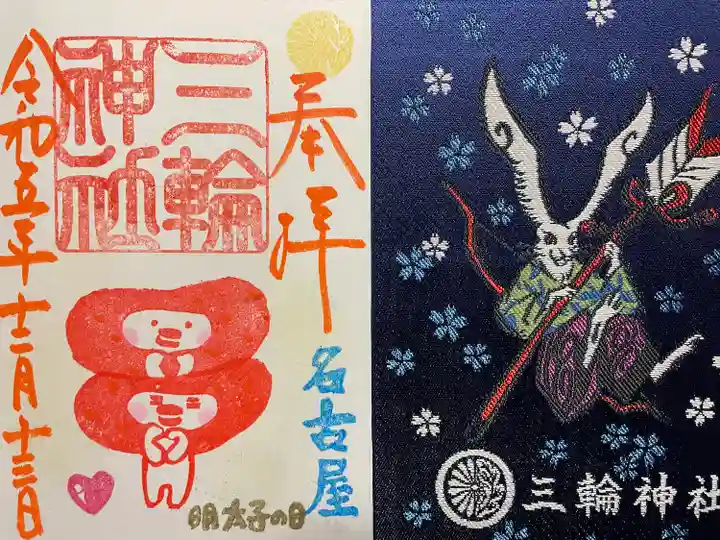 奉拝
三輪
神社
令和五年十二月十二日
名古屋
明太子の日
三輪神社